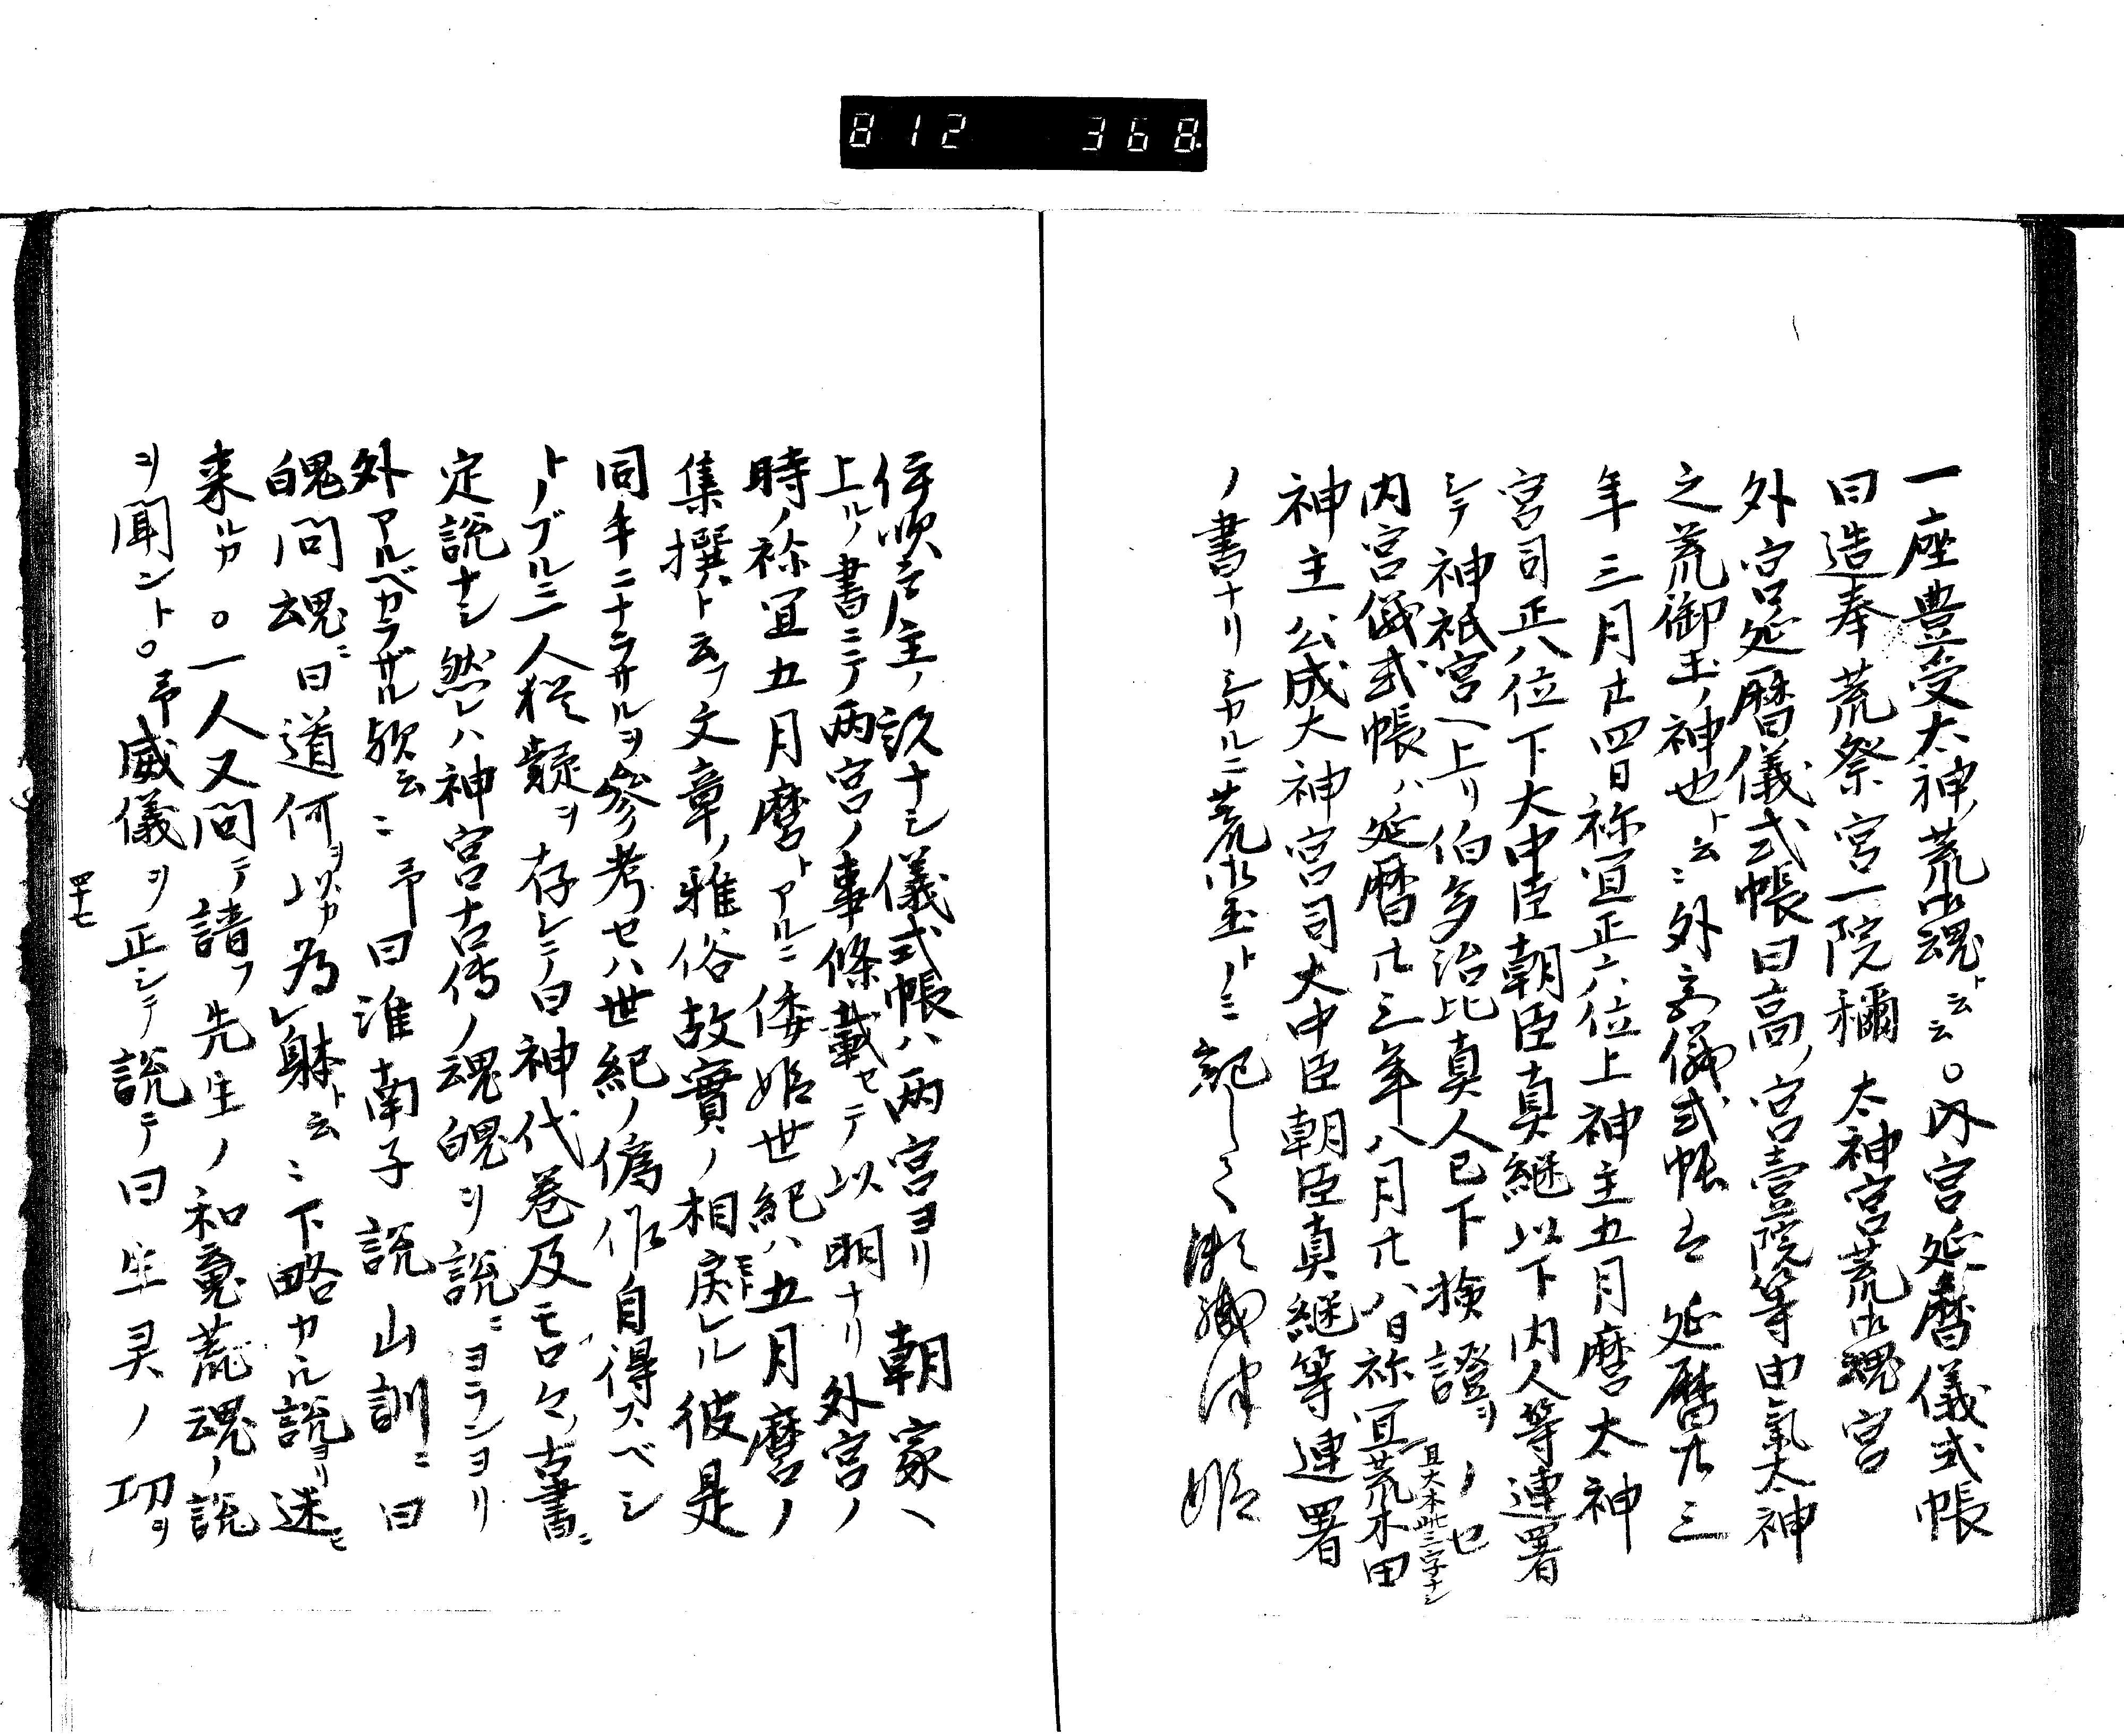 812 368
一座豊受太神ノ荒御魂ト云云○内宮延暦儀式帳
曰造奉荒祭宮一院稱 太神宮荒御魂宮
外宮延暦儀式帳曰高ノ宮壹院等由氣太神
之荒御玉ノ神也ト云ニ外宮儀式帳ハ延暦廿三
年三月廿四日祢宜正六位上神主五月麿太神
宮司正八位下大中臣朝臣真継以下内人等連署
シテ神祇官ヘ上リ伯多治比真人已下検證ヲ
且大本此三字ナシ
内宮儀式帳ハ延暦廿三年八月廿八日祢宜荒木田
神主公成大神宮司大中臣朝臣真継等連署
ノ書ナリシカルニ荒御玉トノミ記シテ瀬織津姫
ナシ儀式帳ハ両宮ヨリ 朝家ヘ
上ルノ書ニテ両宮ノ事條載セテ以明ナリ外宮ノ
時ノ祢宜五月麿トアルニ倭姫世紀ハ五月麿ノ
集撰ト云フ文章ノ雅俗故實ノ相戻レル彼是
同手ニナラサルヲ參考セハ世紀ノ偽作自得スベシ
トノブル二人猶疑ヲ存シテ曰神代巻及モロ々ノ古書ニ
定説ナシ然レハ神宮古傳ノ魂魄ヲ説ニヨランヨリ
外アルベカラザル歟云ニ予曰淮南子説山訓ニ曰
魄問魂ニ曰道何ヲ以カ為レ躰ト云ニ下略カル説ヨリ迷ヒ
来ルカ○一人又問テ請フ先生ノ和魂荒魂ノ説
ヲ聞ント○予威儀ヲ正シテ説テ曰生昊ノ功ヲ
四十七